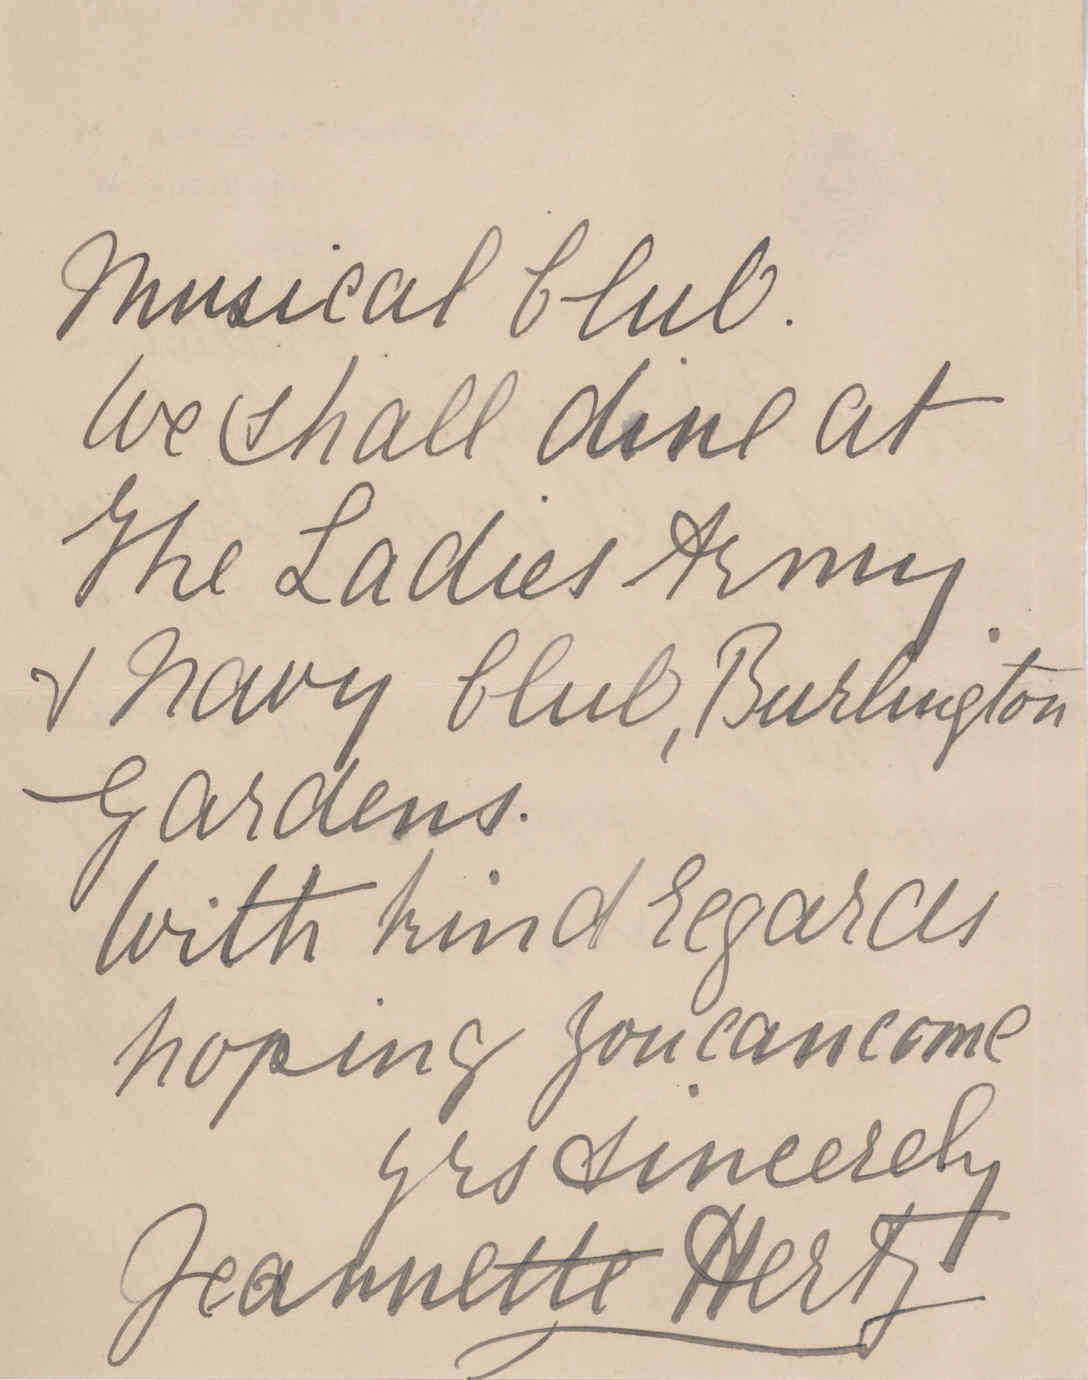 Musical Club.
We shall dine at
The Ladies Army
& Navy Club, Burlington
Gardens.
With kind regards
hoping you can come
yrs sincerely
Jeannette Hertz